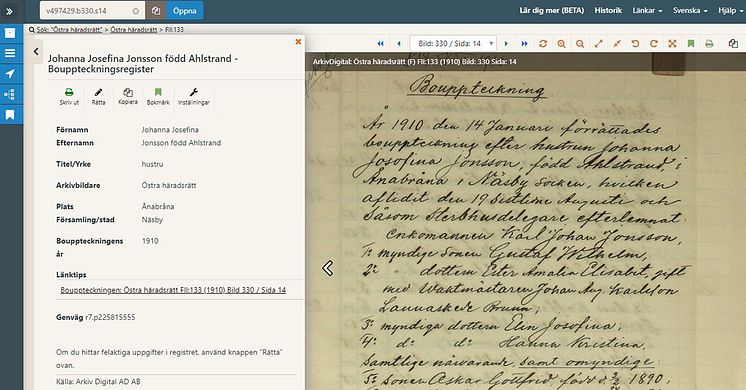 v497429.b330.s14
Öppna
Lär dig mer (BETA) Historik Länkar Svenska Hjälp
Sök: "Östra häradsrätt" > Östra häradsrätt > FII:133
Johanna Josefina Jonsson född Ahlstrand -
Bouppteckningsregister
Skriv ut Rätta Kopiera Bokmärk Inställningar
Förnamn Johanna Josefina
Efternamn Jonsson född Ahlstrand
Titel/Yrke hustru
Arkivbildare Östra häradsrätt
Plats Ånabråna
Församling/stad Näsby
Bouppteckningens 1910
år
Länktips
Bouppteckningen: Östra häradsrätt FII:133 (1910) Bild 330 / Sida 14
Genväg r7.p225815555
Om du hittar felaktiga uppgifter i registret, använd knappen "Rätta"
ovan.
Källa: Arkiv Digital AD AB
Bild: 330 / Sida: 14
ArkivDigital: Östra häradsrätt (F) FII:133 (1910) Bild: 330 Sida: 14
Bouppteckning
År 1910 den 14 Januari förrättades
bouppteckning efter hustrun Johanna
Josefina Jonsson, född Ahlstrand, i
Ånabråna i Näsby Socken, hvilken
aflidit den 19 sistline Augusti och
Såsom Sterbhusdelegare efterlemnat:
Enkomannen Karl Johan Jonsson,
1º myndige Sonen Gustaf Wilhelm,
2º " dottern Ester Amalia Elisabet, gift
med Waktmästaren Johan Aug. Karlson
Lannaskede Brunn;
3º myndiga dottern Elin Josefina;
4º d:o d:o Hanna Kristina,
samtlige närvarande, samt omyndige:
5º Sonen Oskar Gottfrid, född d. 1890;